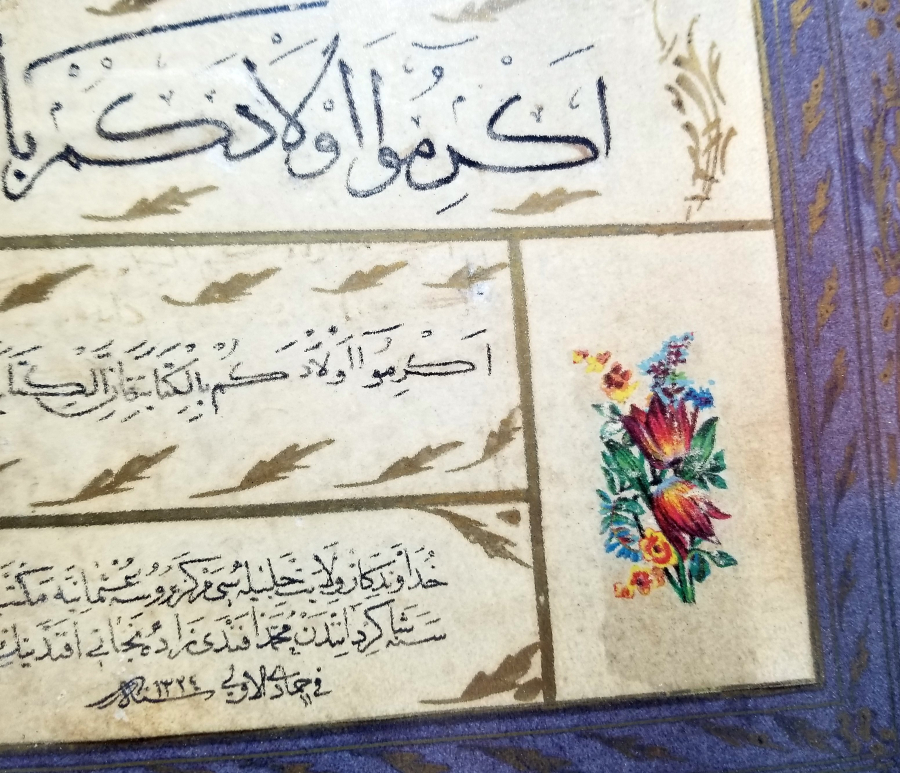 اَكْرِمُوا اَوْلَادَكُمْ
اَكْرِمُوا اَوْلَادَكُمْ بِالْكِتَابَةِ فَاِنَّ الْكِتَابَ
خُدَاوَنْدِكَارْ وِلَايَتِ جَلِيلَه سِى مَرْكَزِ عُثْمَانِيَه مَكْتَب
شَاكِرْدَانِنْدَنْ مُحَمَّد اَفَنْدِى زَادَه نَجَاتِى اَفَنْدِينِكْ
فى جمادى الاولى سنه ١٣٢٤